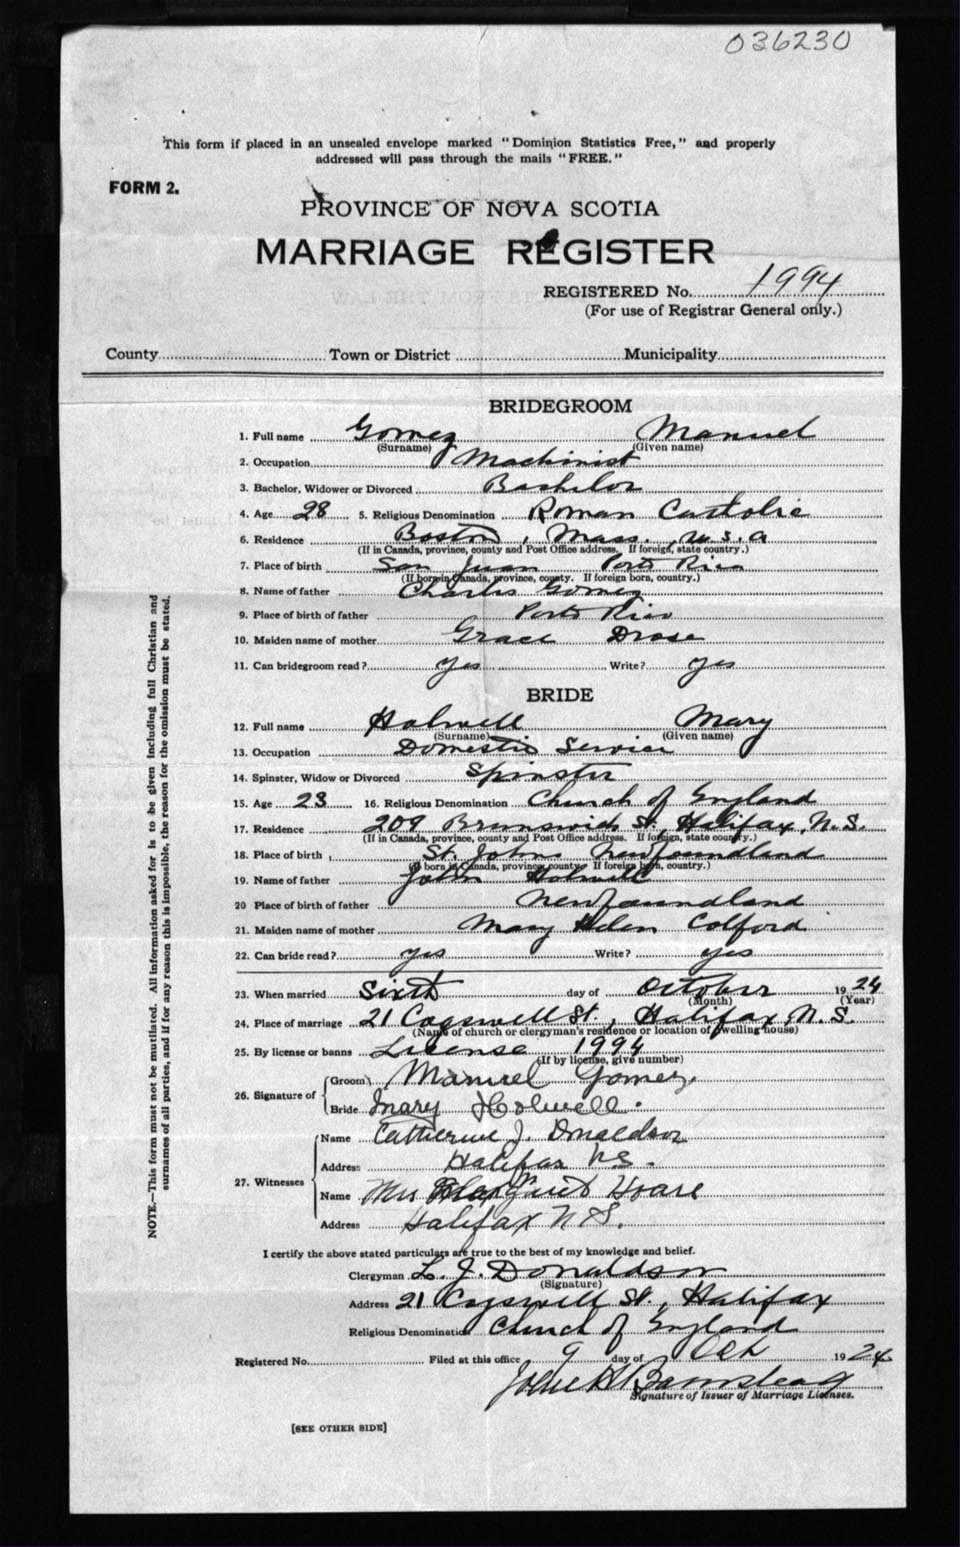 036230
This form if placed in an unsealed envelope marked "Dominion Statistics Free," and properly
addressed will pass through the mails "FREE."
FORM 2.
PROVINCE OF NOVA SCOTIA
MARRIAGE REGISTER
REGISTERED No. 1994
(For use of Registrar General only.)
County Town or District Municipality
BRIDEGROOM
1. Full name Gomez Manuel
(Surname) (Given name)
2. Occupation Machinist
3. Bachelor, Widower or Divorced Bachelor
4. Age 28 5. Religious Denomination Roman Catholic
6. Residence Boston, Mass., U.S.A
(If in Canada, province, county and Post Office address. If foreign, state country.)
7. Place of birth San Juan Porto Rico
(If born in Canada, province, county. If foreign born, country.)
8. Name of father Charles Gomez
9. Place of birth of father Porto Rico
10. Maiden name of mother Grace Drose
11. Can bridegroom read? yes Write? yes
BRIDE
12. Full name Holwell Mary
(Surname) (Given name)
13. Occupation Domestic Service
14. Spinster, Widow or Divorced Spinster
15. Age 23 16. Religious Denomination Church of England
17. Residence 209 Brunswick St, Halifax, N.S.
(If in Canada, province, county and Post Office address. If foreign, state country.)
18. Place of birth St. Johns Newfoundland
(If born in Canada, province, county. If foreign born, country.)
19. Name of father John Holwell
20 Place of birth of father Newfoundland
21. Maiden name of mother Mary Helen Colford
22. Can bride read? yes Write? yes
23. When married Sixth day of October 1924
(Month) (Year)
24. Place of marriage 21 Cogswell St., Halifax, N.S.
(Name of church or clergyman's residence or location of dwelling house)
25. By license or banns License 1994
(If by license, give number)
26. Signature of
Groom Manuel Gomez.
Bride Mary Holwell.
27. Witnesses
Name Catherine J. Donaldson
Address Halifax NS.
Name Mrs Margaret Hoare
Address Halifax N S.
I certify the above stated particulars are true to the best of my knowledge and belief.
Clergyman L. J. Donaldson
(Signature)
Address 21 Cogswell St., Halifax
Religious Denomination Church of England
Registered No. Filed at this office 9 day of Oct 1924
Signature of Issuer of Marriage Licenses.
[SEE OTHER SIDE]
NOTE.—This form must not be mutilated. All information asked for is to be given including full Christian and
surnames of all parties, and if for any reason this is impossible, the reason for the omission must be stated.